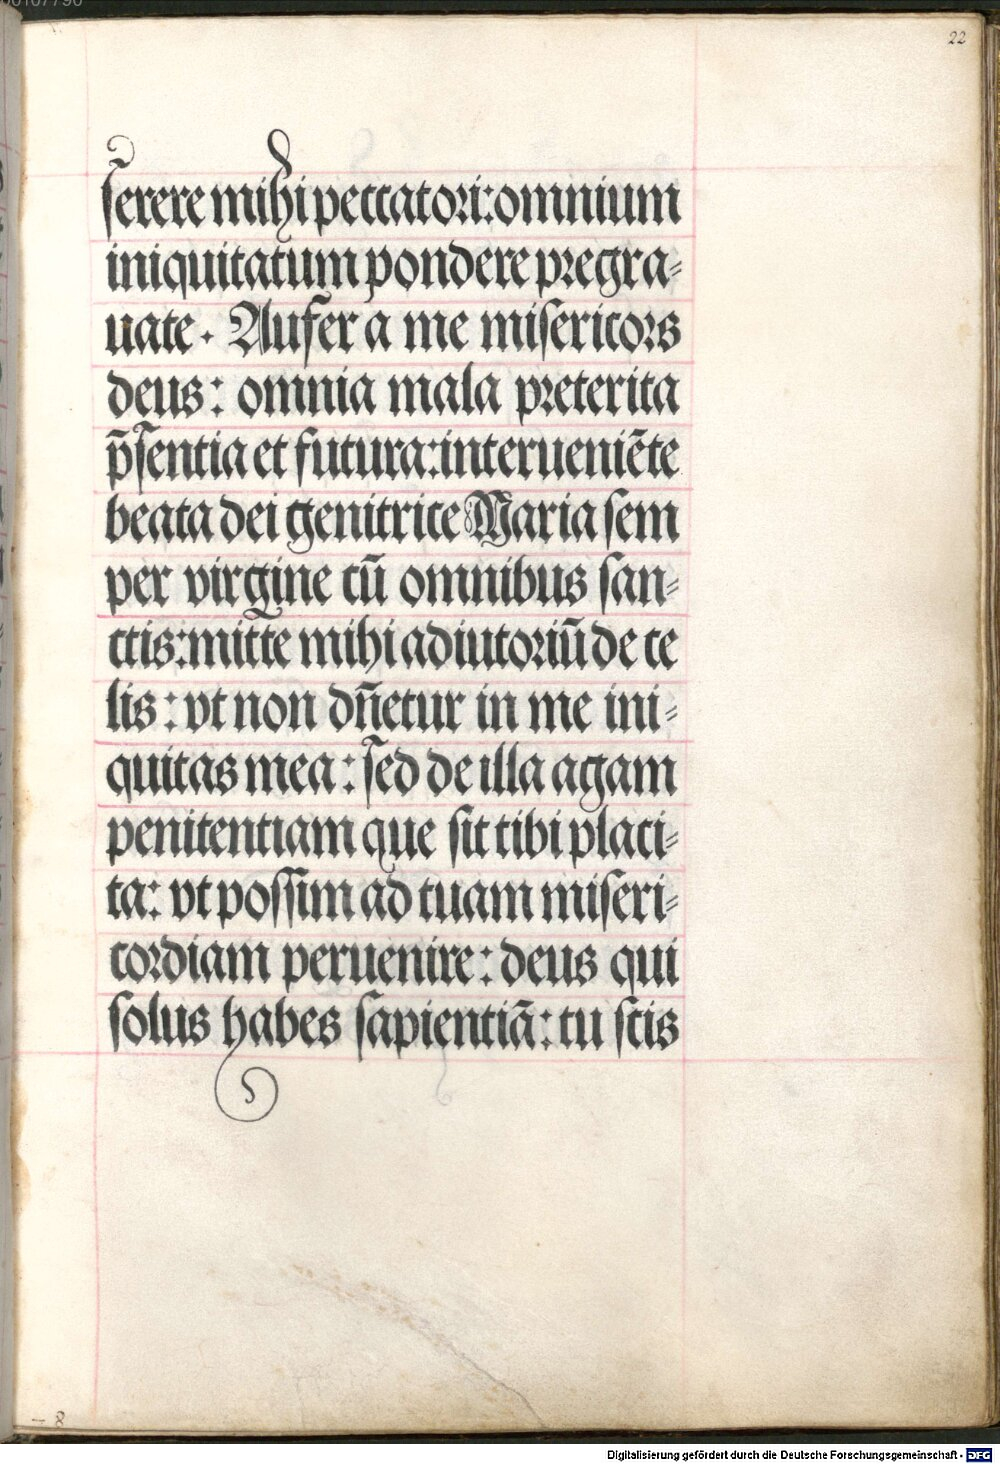 00107790
22
serere mihi peccatori: omnium
iniquitatum pondere pregra-
uate. Aufer a me misericors
deus: omnia mala preterita
p̄sentia et futura: interueniēte
beata dei genitrice Maria sem
per virgine cū omnibus san-
ctis: mitte mihi adiutoriū de ce
lis: vt non dn̄etur in me ini-
quitas mea: sed de illa agam
penitentiam que sit tibi placi-
ta: vt possim ad tuam miseri-
cordiam peruenire: deus qui
solus habes sapientiā: tu scis
- 8
Digitalisierung gefördert durch die Deutsche Forschungsgemeinschaft - DFG